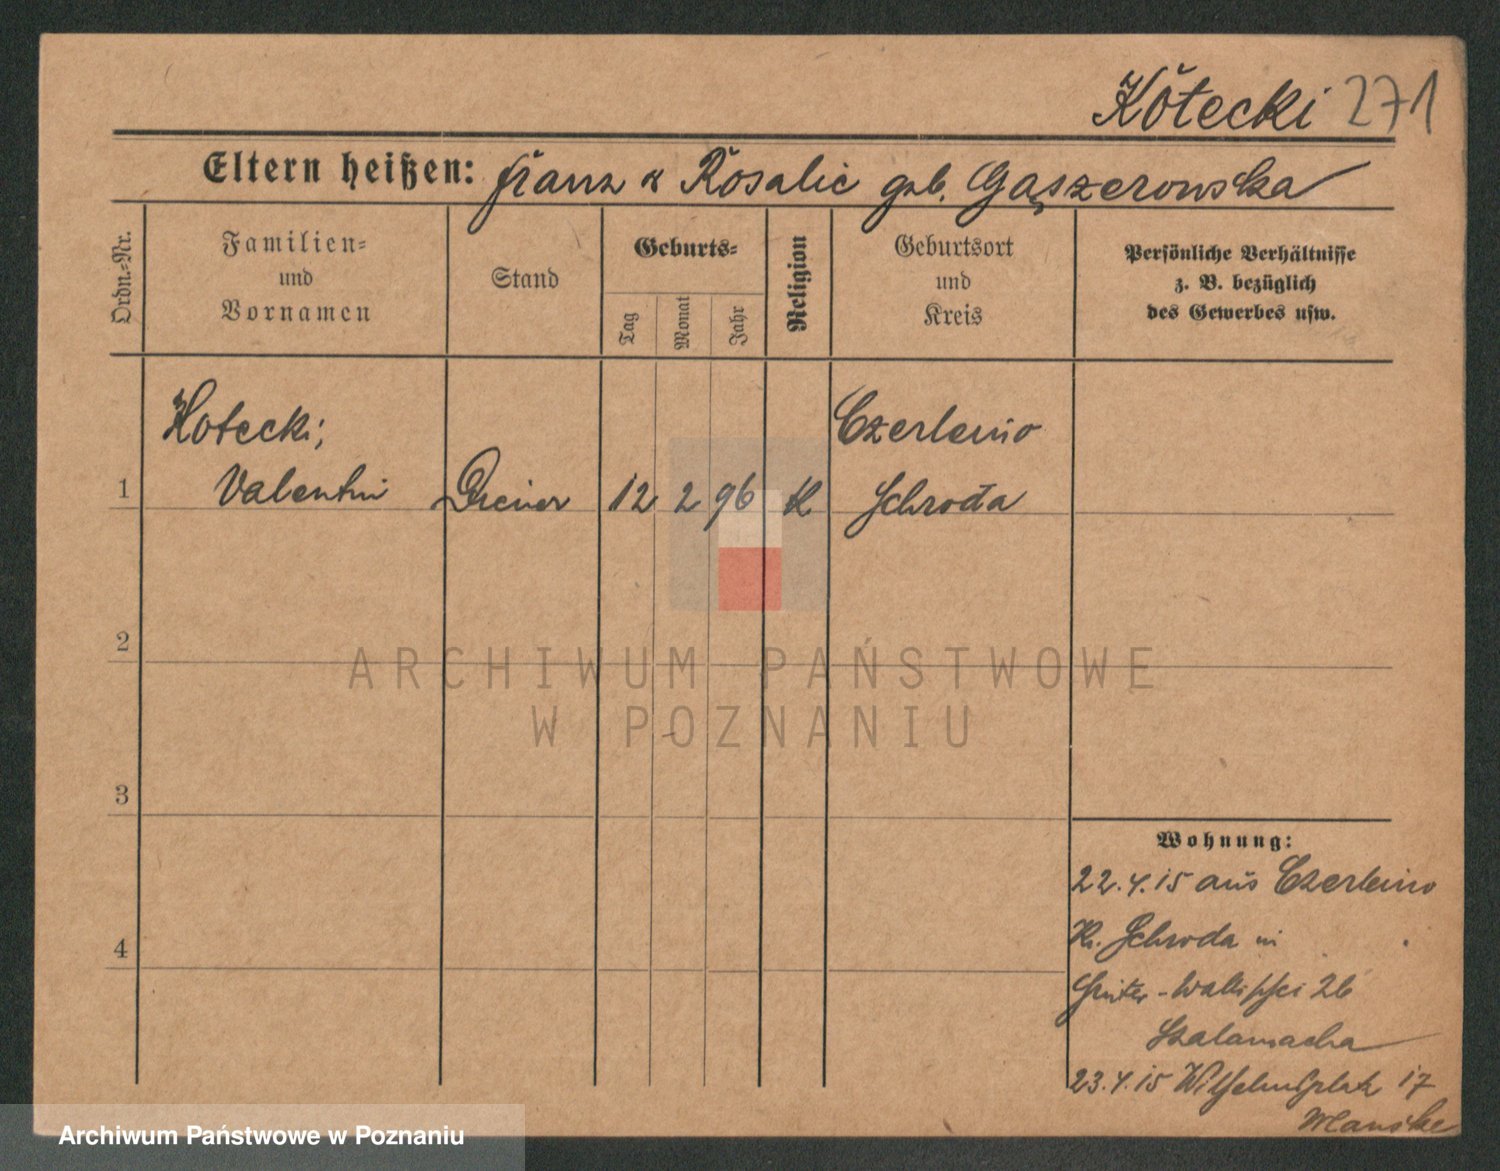 Kotecki 271
Eltern heißen: Franz u Rosalie geb. Gąszerowska
Ordn.-Nr.
Familien-
und
Vornamen
Stand
Geburts-
Tag
Monat
Jahr
Religion
Geburtsort
und
Kreis
Persönliche Verhältnisse
z. B. bezüglich
des Gewerbes usw.
Kotecki,
Czerleino
1 Valentin Diener 12 2 96 K Schroda
2
ARCHIWUM PAŃSTWOWE
W POZNANIU
3
Wohnung:
22.4.15 aus Czerleino
Kr. Schroda in
4
26
Szalamacha
23.4.15 Wilhelmsplatz 17
Manske
Archiwum Państwowe w Poznaniu